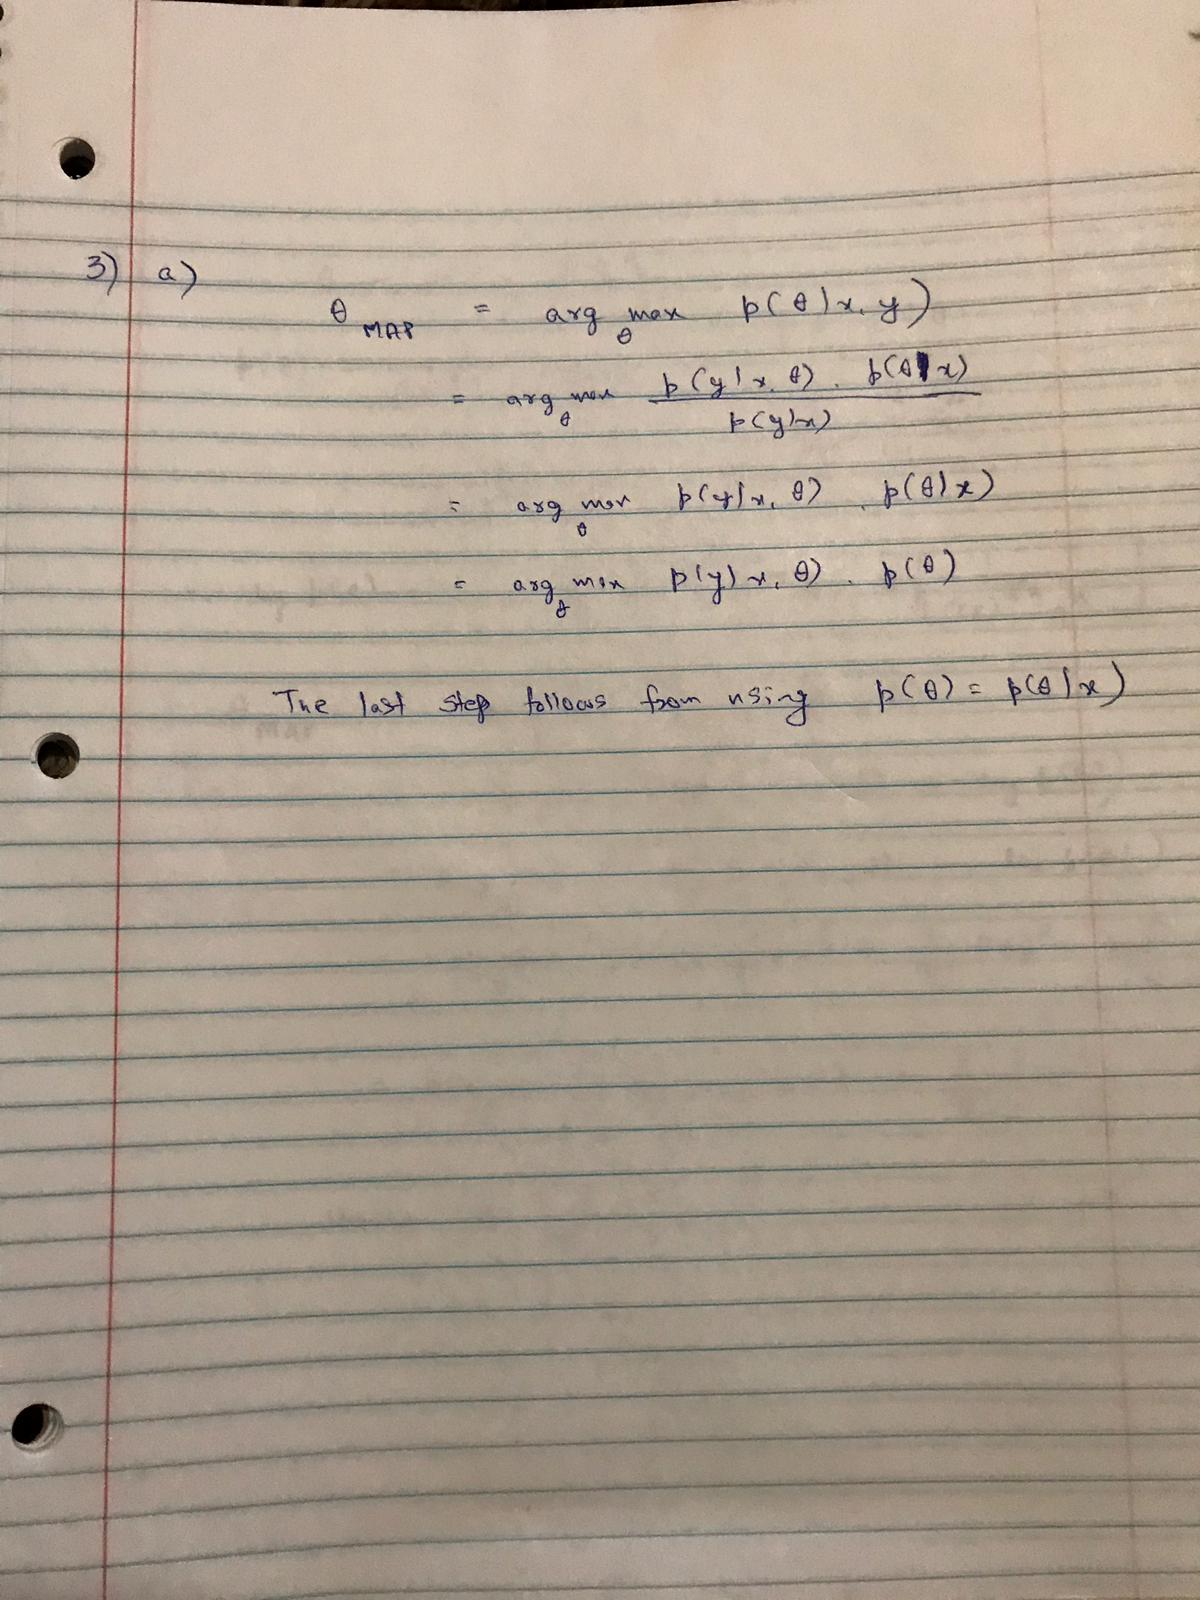 3) a)
θ MAP = arg max θ p(θ|x, y)
= arg max θ p(y|x, θ) . p(θ|x)
p(y|x)
= arg max θ p(y|x, θ) . p(θ|x)
= arg max θ p(y|x, θ) . p(θ)
The last step follows from using p(θ) = p(θ|x)